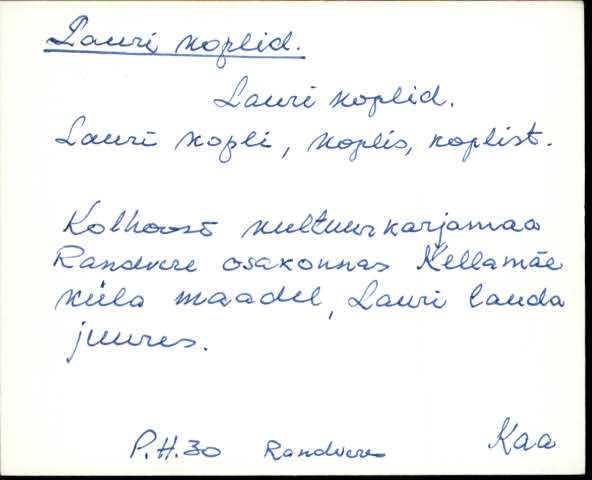 Lauri koplid.
Lauri koplid.
Lauri kopli, koplis, koplist.
Kolhoosi kultuurkarjamaa
Randvere osakonnas Kellamäe
küla maadel, Lauri lauda
juures.
P.H.30 Randvere Kaa